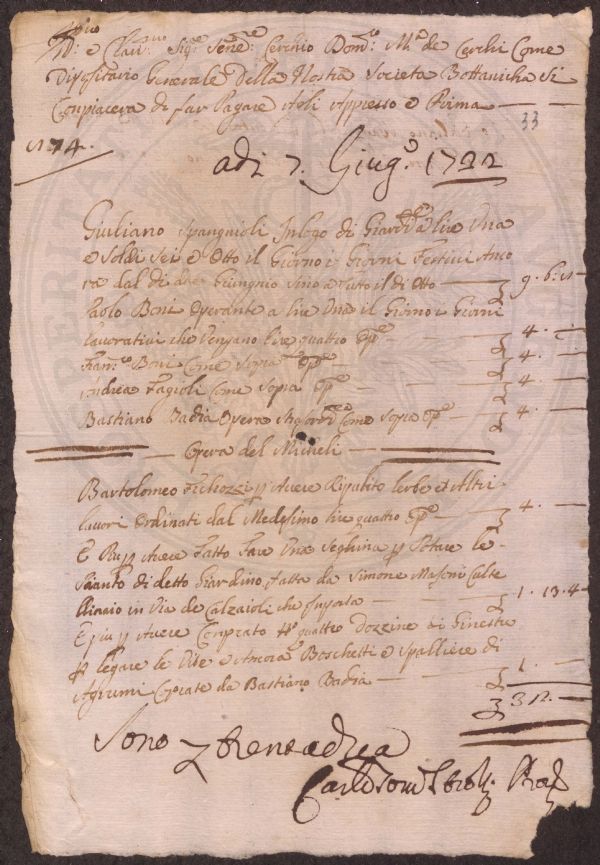 e Clar.mo Sig.re Cerchio Dom.co M.a de Cerchi Come
Dipositario Generale Della Nostra Societa Bottanicha Si
Conpiacera di far Pagare Agli Appresso e Firma
33
N 74.
adi 7. Giug.o 1722
Giuliano Spangnioli di Giard a lire Una
e Soldi Sei e Otto il Giorno i Giorni Festivi Anco
ra dal di Giungnio Sino a Tuto il di Otto 9. 6.
Paolo Boni Operante a lire Una il Giorno i Giorni
lavorativi che Vengano lire quattro 4.
Fran.co Boni Come Sopra 4.
Andrea Fagioli Come Sopra 4.
Bastiano Badia Opera Come Sopra 4.
Opera del Micheli
Bartolomeo p Avere Ripulito lerbe et Altri
lavori Ordinati dal Medesimo lire quattro 4.
E p Avere Fatto Fare Una Seghina p Potare le
Piante di detto Giardino, fatta da Simone Masoni Colte
llinaio in Via de Calzaioli che Inporta 1. 13. 4
E piu p Avere Conprato quattro Dozzine di Ginestre
p legare le Vite e Ancora Boschetti e Spalliere di
Agrumi Conprate da Bastiano Badia 1.
31.
Sono